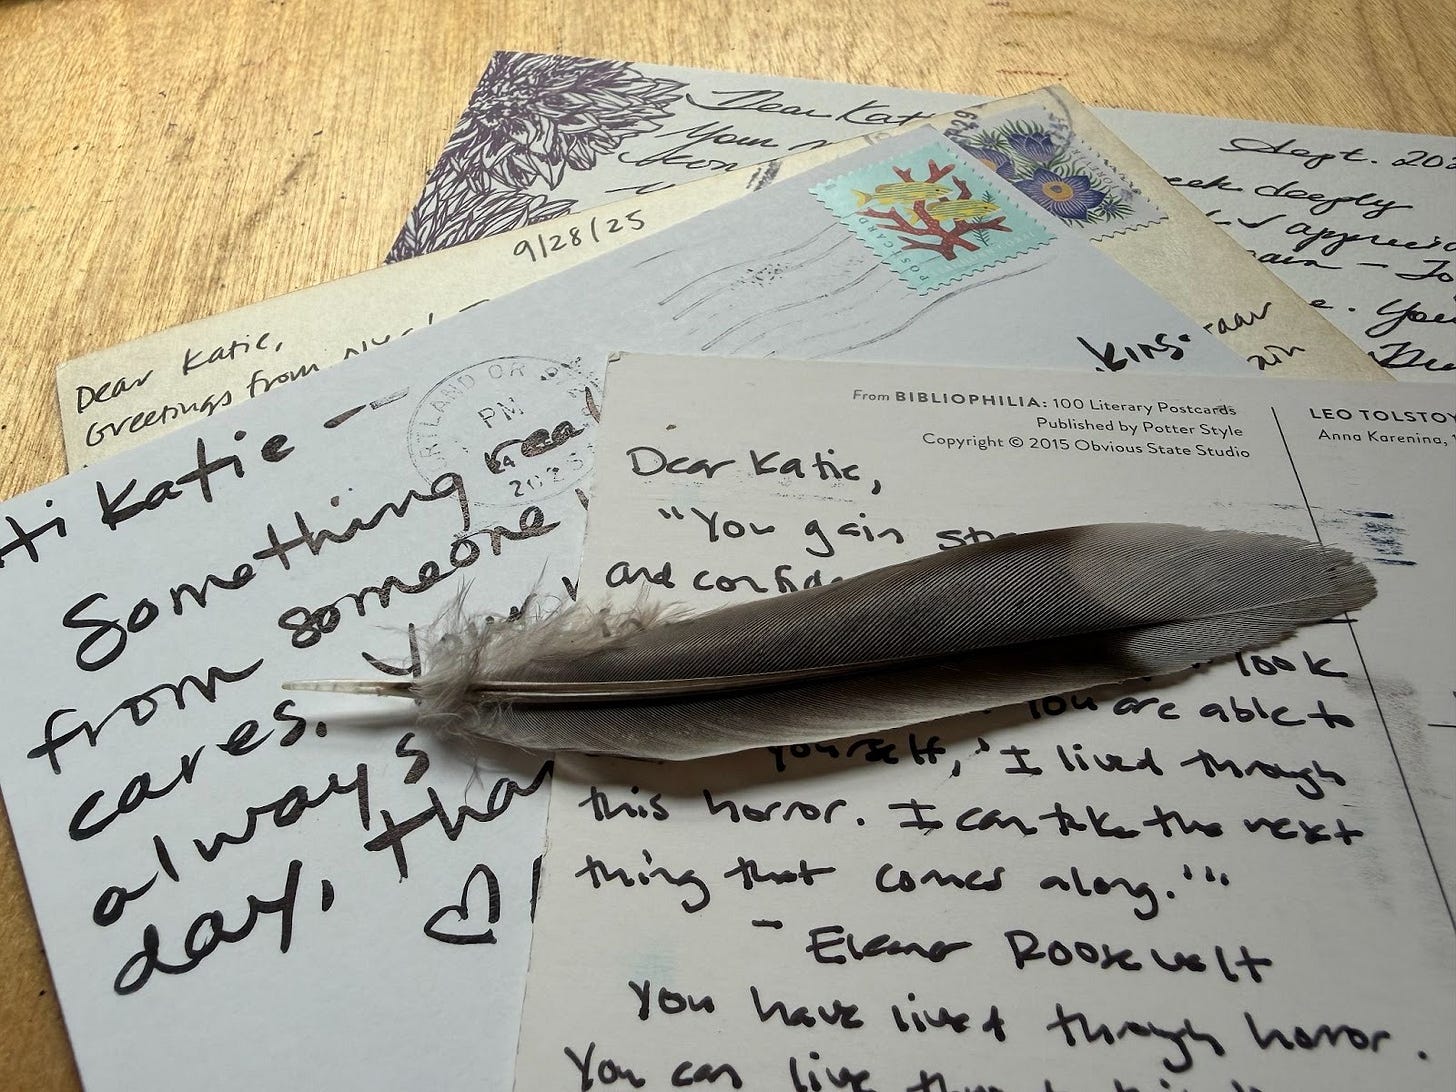 Dear Kat
Your
Sept. 202
eek deeply
I apprecia
ain – To
e. You
9/28/25
Dear Katie,
Greetings from
POSTCARD
kins.
PORTLAND OR
PM
24
2025
Hi Katie –
Something real
from someone
cares.
always
day, tha
From BIBLIOPHILIA: 100 Literary Postcards
Published by Potter Style
Copyright © 2015 Obvious State Studio
LEO TOLSTOY
Anna Karenina, 1
Dear Katie,
"You gain
and confide
look
You are able to
yourself, 'I lived through
this horror. I can take the next
thing that comes along.'"
- Eleanor Roosevelt
You have lived through horror.
You can live